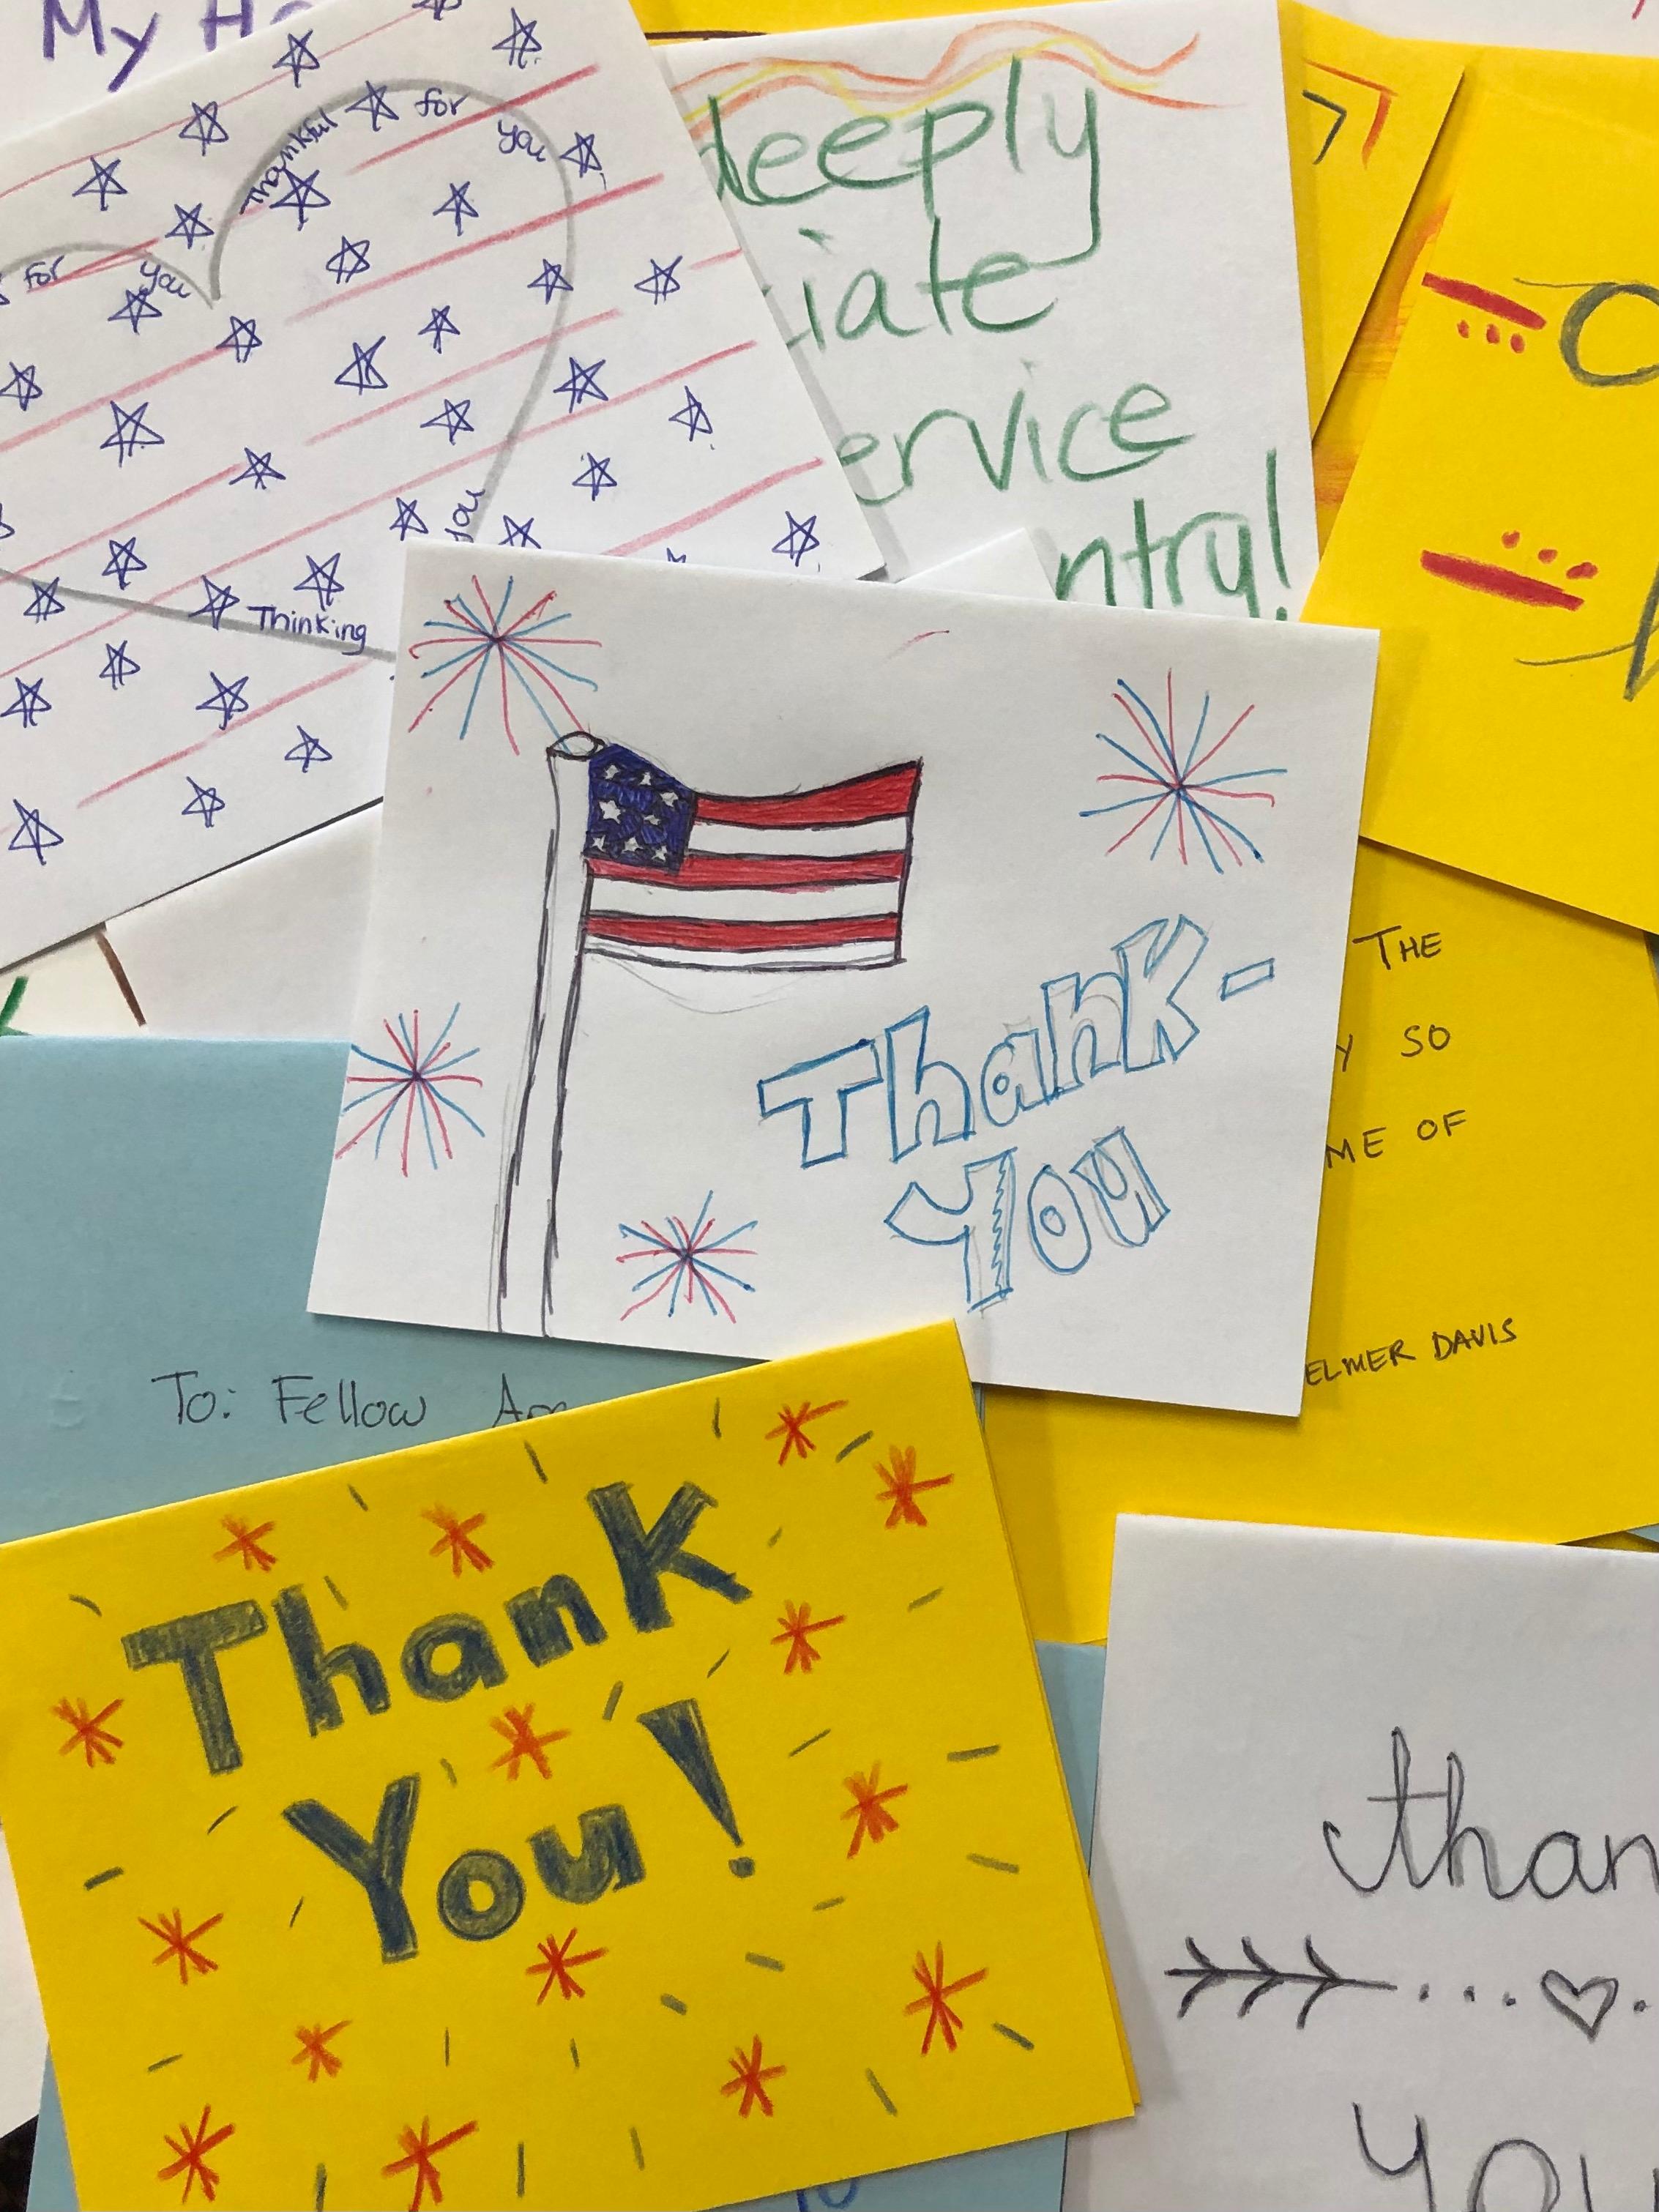 My H
Thankful for you
for you
you
Thinking
deeply
ciate
ervice
ntry!
THE
Y SO
ME OF
ELMER DAVIS
Thank-
You
To: Fellow Am
Thank
You!
than
you